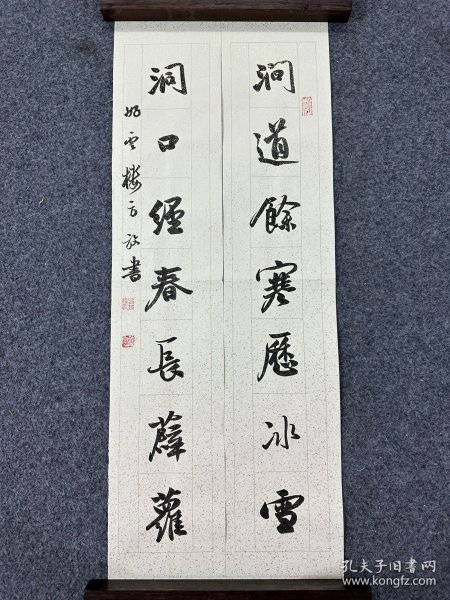 澗道餘寒歷冰雪
洞口經春長薜蘿
樓方欽書
孔夫子旧书网
www.kongfz.com